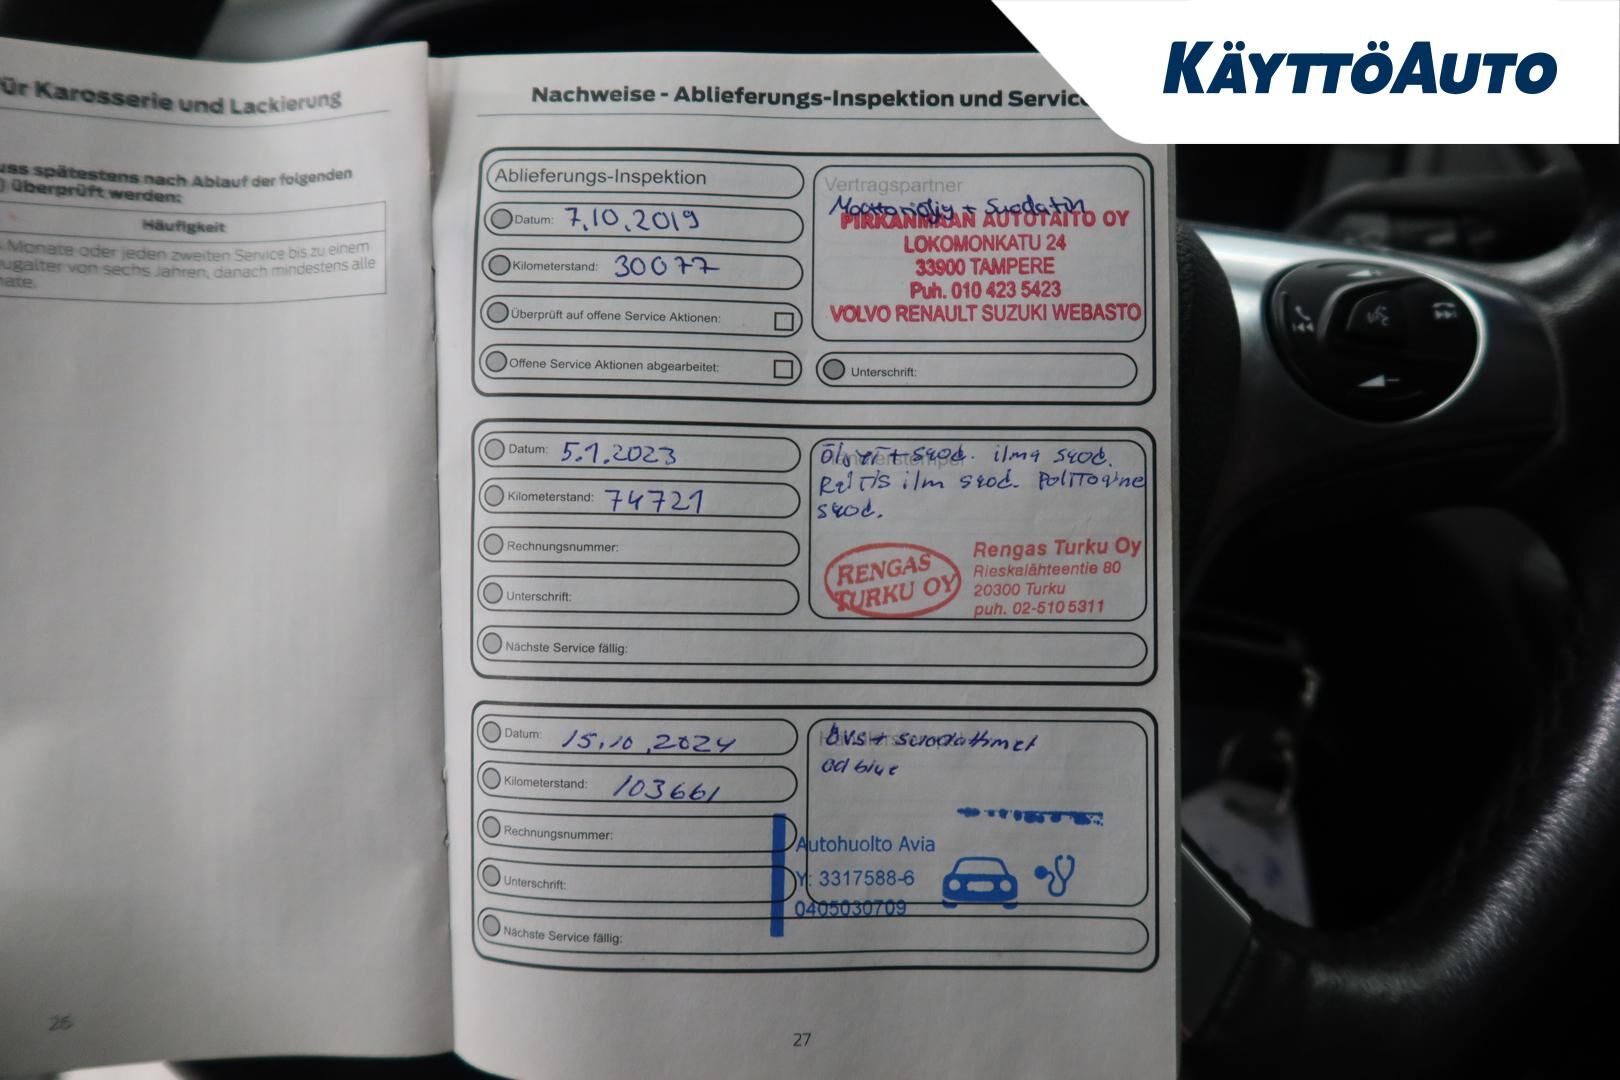 KÄYTTÖAUTO
ür Karosserie und Lackierung
uss spätestens nach Ablauf der folgenden
) überprüft werden:
Häufigkeit
Monate oder jeden zweiten Service bis zu einem
ugalter von sechs Jahren, danach mindestens alle
nate.
26
Nachweise - Ablieferungs-Inspektion und Service
Ablieferungs-Inspektion
Datum: 7.10.2019
Kilometerstand: 30077
Überprüft auf offene Service Aktionen:
Offene Service Aktionen abgearbeitet:
Vertragspartner
Moottoriöljy + Suodatin
PIRKANMAAN AUTOTAITO OY
LOKOMONKATU 24
33900 TAMPERE
Puh. 010 423 5423
VOLVO RENAULT SUZUKI WEBASTO
Unterschrift:
Datum: 5.1.2023
Kilometerstand: 74721
Rechnungsnummer:
Unterschrift:
Nächste Service fällig:
+ suod. ilma suod.
ilm suod. Polttoaine
suod.
RENGAS
TURKU OY
Rengas Turku Oy
Rieskalähteentie 80
20300 Turku
puh. 02-510 5311
Datum: 15.10.2024
Kilometerstand: 103661
Rechnungsnummer:
Unterschrift:
Nächste Service fällig:
+ suodattimet
ad blue
Autohuolto Avia
Y: 3317588-6
0405030709
27